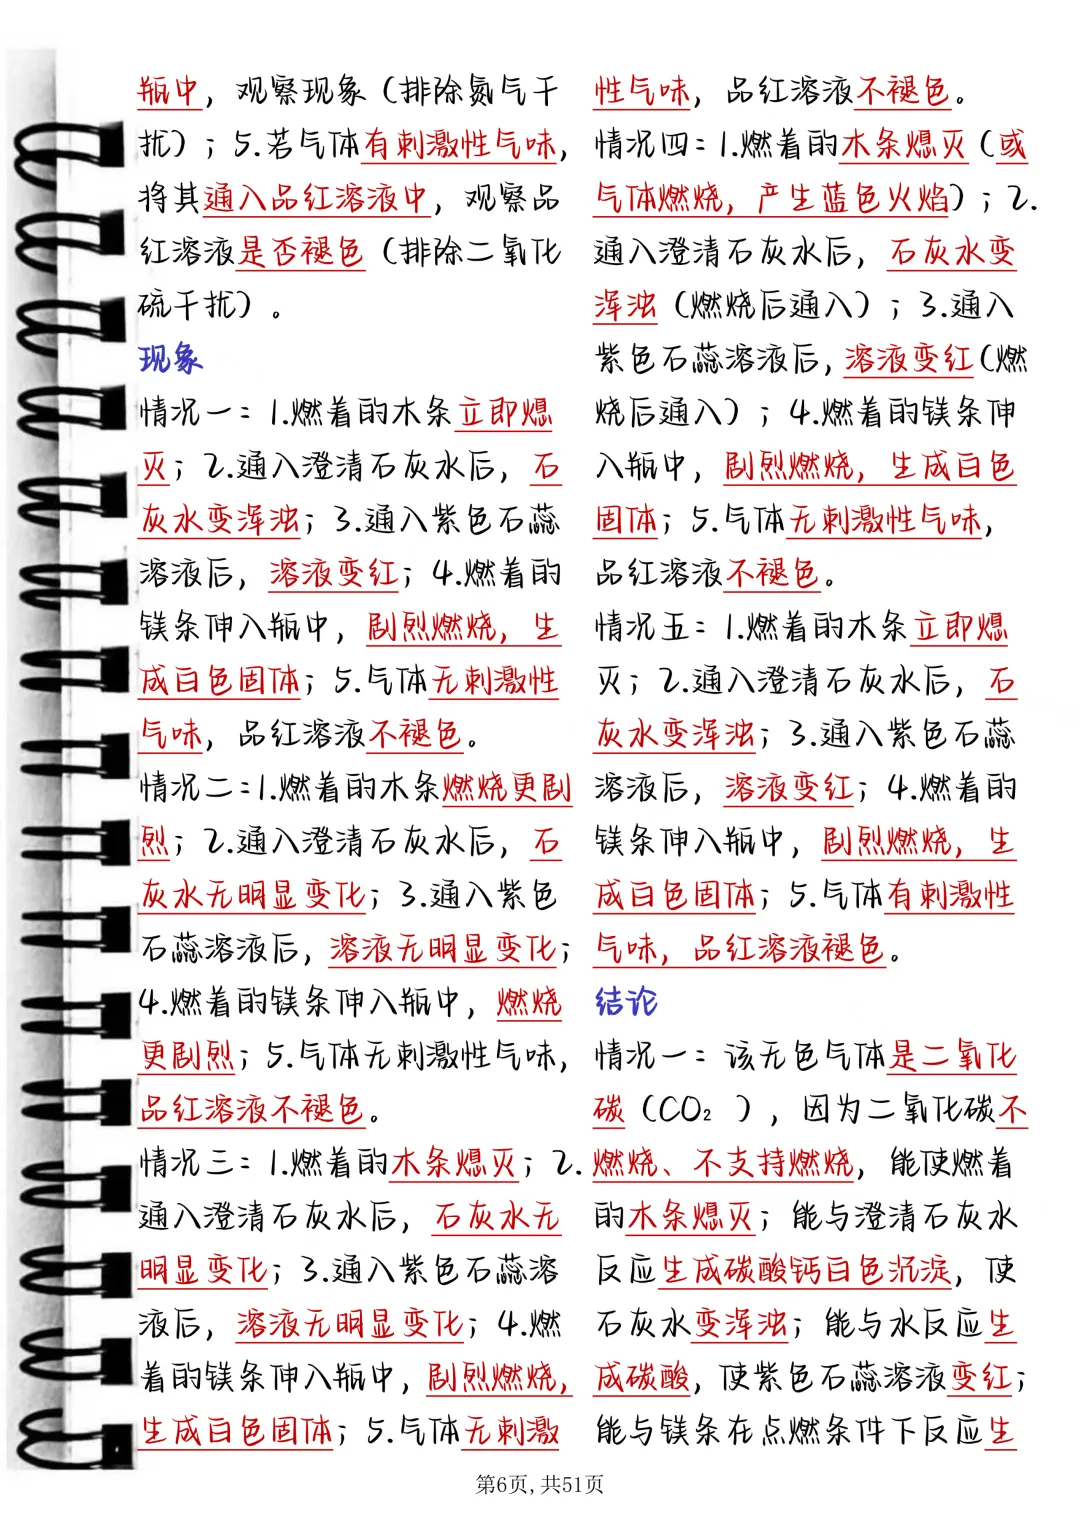 瓶中，观察现象（排除氮气干
扰）；5.若气体有刺激性气味，
将其通入品红溶液中，观察品
红溶液是否褪色（排除二氧化
硫干扰）。
现象
情况一：1.燃着的木条立即熄
灭；2.通入澄清石灰水后，石
灰水变浑浊；3.通入紫色石蕊
溶液后，溶液变红；4.燃着的
镁条伸入瓶中，剧烈燃烧，生
成白色固体；5.气体无刺激性
气味，品红溶液不褪色。
情况二：1.燃着的木条燃烧更剧
烈；2.通入澄清石灰水后，石
灰水无明显变化；3.通入紫色
石蕊溶液后，溶液无明显变化；
4.燃着的镁条伸入瓶中，燃烧
更剧烈；5.气体无刺激性气味，
品红溶液不褪色。
情况三：1.燃着的木条熄灭；2.
通入澄清石灰水后，石灰水无
明显变化；3.通入紫色石蕊溶
液后，溶液无明显变化；4.燃
着的镁条伸入瓶中，剧烈燃烧，
生成白色固体；5.气体无刺激
性气味，品红溶液不褪色。
情况四：1.燃着的木条熄灭（或
气体燃烧，产生蓝色火焰）；2.
通入澄清石灰水后，石灰水变
浑浊（燃烧后通入）；3.通入
紫色石蕊溶液后，溶液变红（燃
烧后通入）；4.燃着的镁条伸
入瓶中，剧烈燃烧，生成白色
固体；5.气体无刺激性气味，
品红溶液不褪色。
情况五：1.燃着的木条立即熄
灭；2.通入澄清石灰水后，石
灰水变浑浊；3.通入紫色石蕊
溶液后，溶液变红；4.燃着的
镁条伸入瓶中，剧烈燃烧，生
成白色固体；5.气体有刺激性
气味，品红溶液褪色。
结论
情况一：该无色气体是二氧化
碳（CO₂ ），因为二氧化碳不
燃烧、不支持燃烧，能使燃着
的木条熄灭；能与澄清石灰水
反应生成碳酸钙白色沉淀，使
石灰水变浑浊；能与水反应生
成碳酸，使紫色石蕊溶液变红；
能与镁条在点燃条件下反应生
第6页，共51页